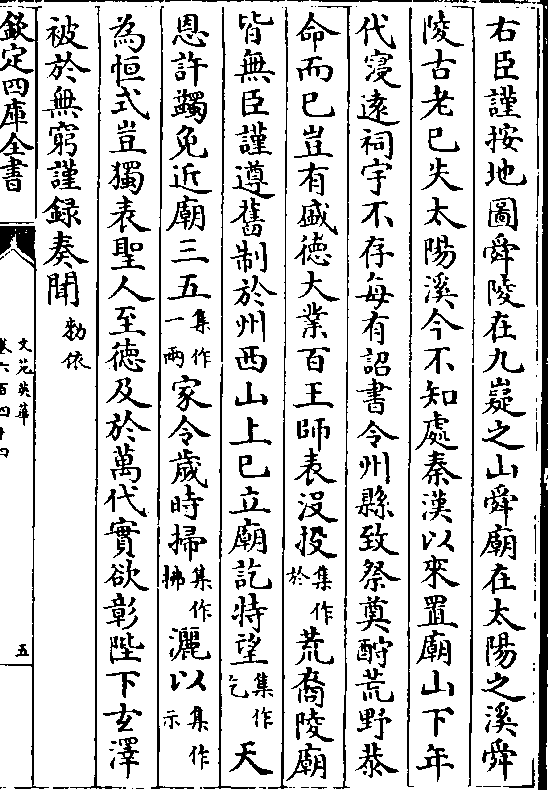 右臣謹按地圖舜陵在九嶷之山舜廟在太陽之溪舜
陵古老已失太陽溪今不知處秦漢以來置廟山下年
代寖逺祠宇不存每有詔書令州縣致祭奠酹荒野恭
命而已豈有盛徳大業百王師表没投集作於荒裔陵廟
皆無臣謹遵舊制於州西山上已立廟訖特望集作乞天
恩許蠲免近廟三五集作一兩家令歲時掃集作拂灑以集作示
為恒式豈獨表聖人至徳及於萬代實欲彰陛下玄澤
被於無窮謹録奏聞勅依
欽定四庫全書
文苑英華
卷六百四十四
五